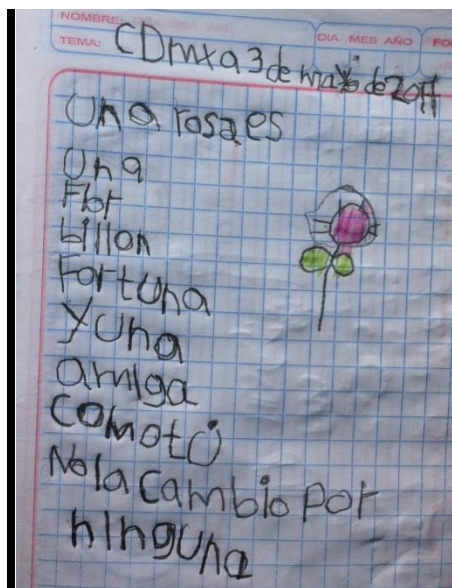 NOMBRE:
DIA MES AÑO
TEMA: CDmxa 3 de mayo de 2017
Una rosa es
Una
Flor
billon
Fortuna
Y Una
amiga
como tú
No la cambio por
ninguna